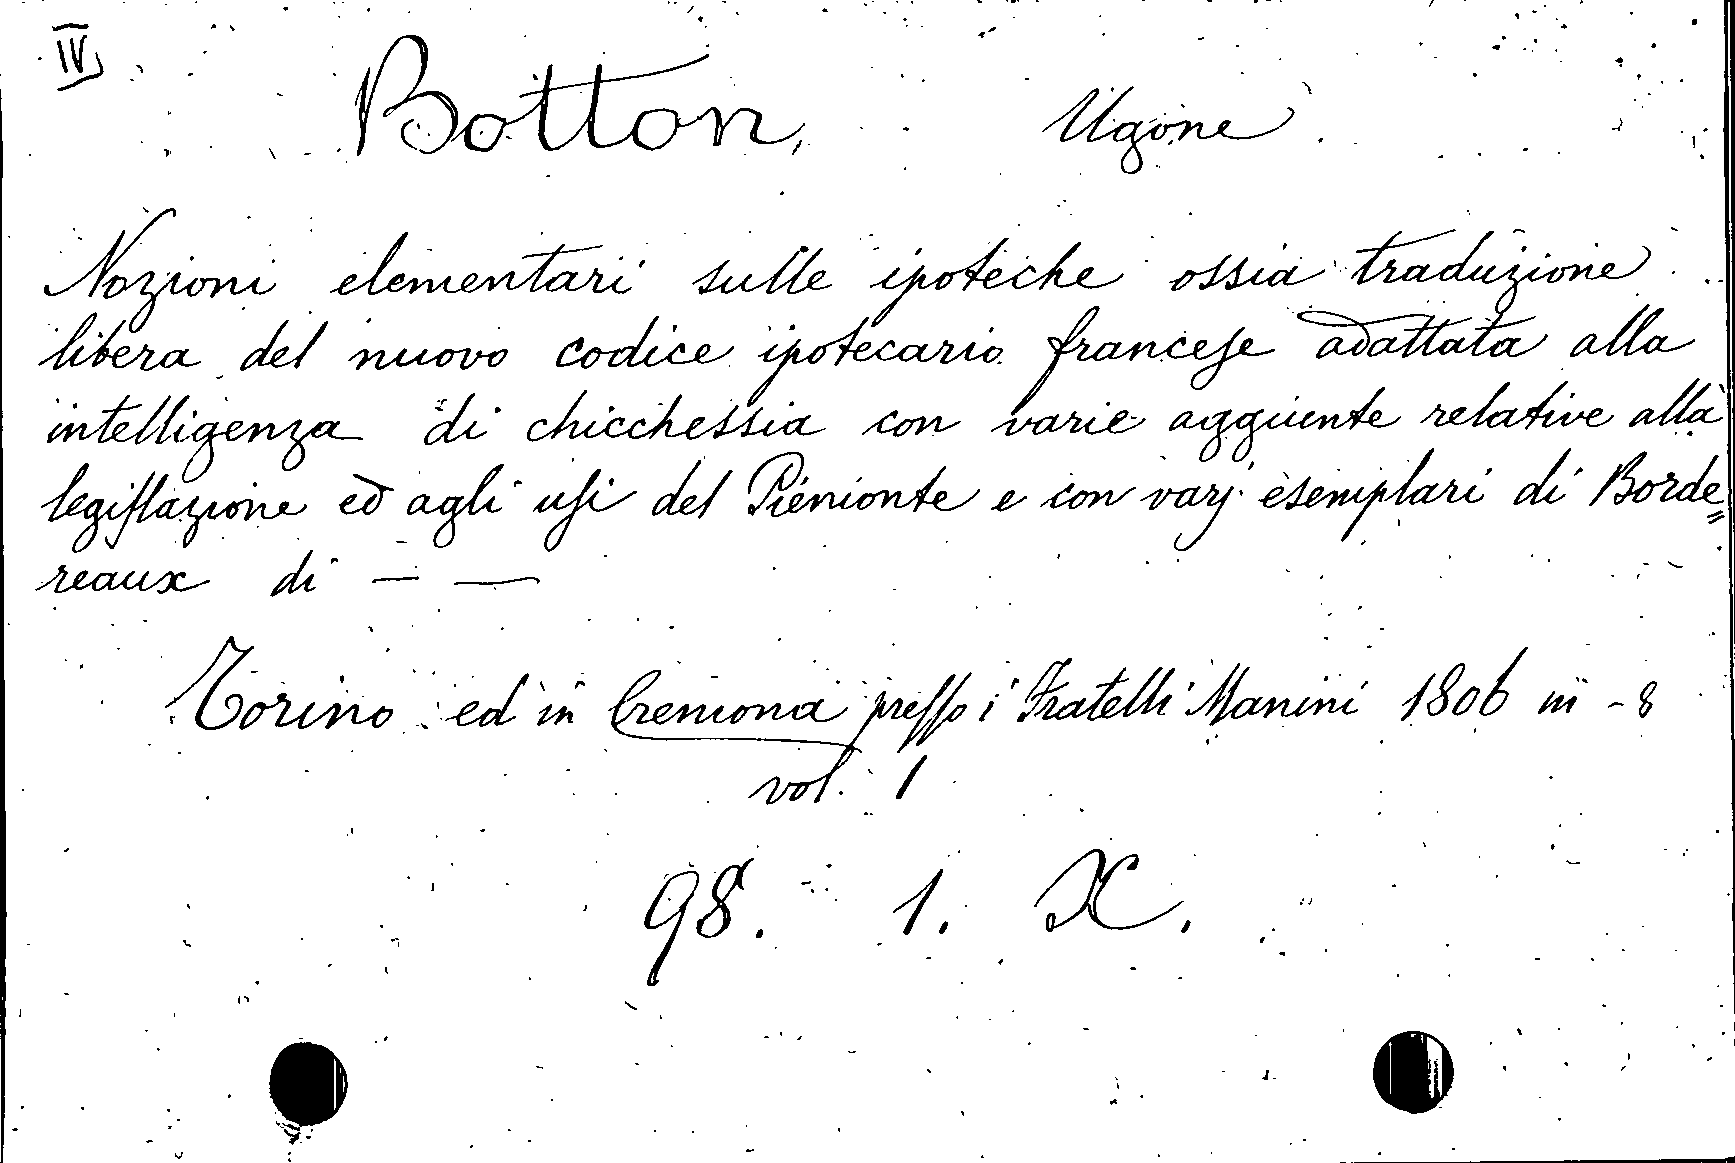 IV
Botton, Ugone
Nozioni elementari sulle ipoteche ossia traduzione
libera del nuovo codice ipotecario francese adattata alla
intelligenza di chicchessia con varie aggiunte relative alla
legislazione ed agli usi del Piemonte e con varj esemplari di Borde=
reaux di — —
Torino ed in Cremona presso i Fratelli Manini 1806 in -8
vol. 1
98. 1. X.